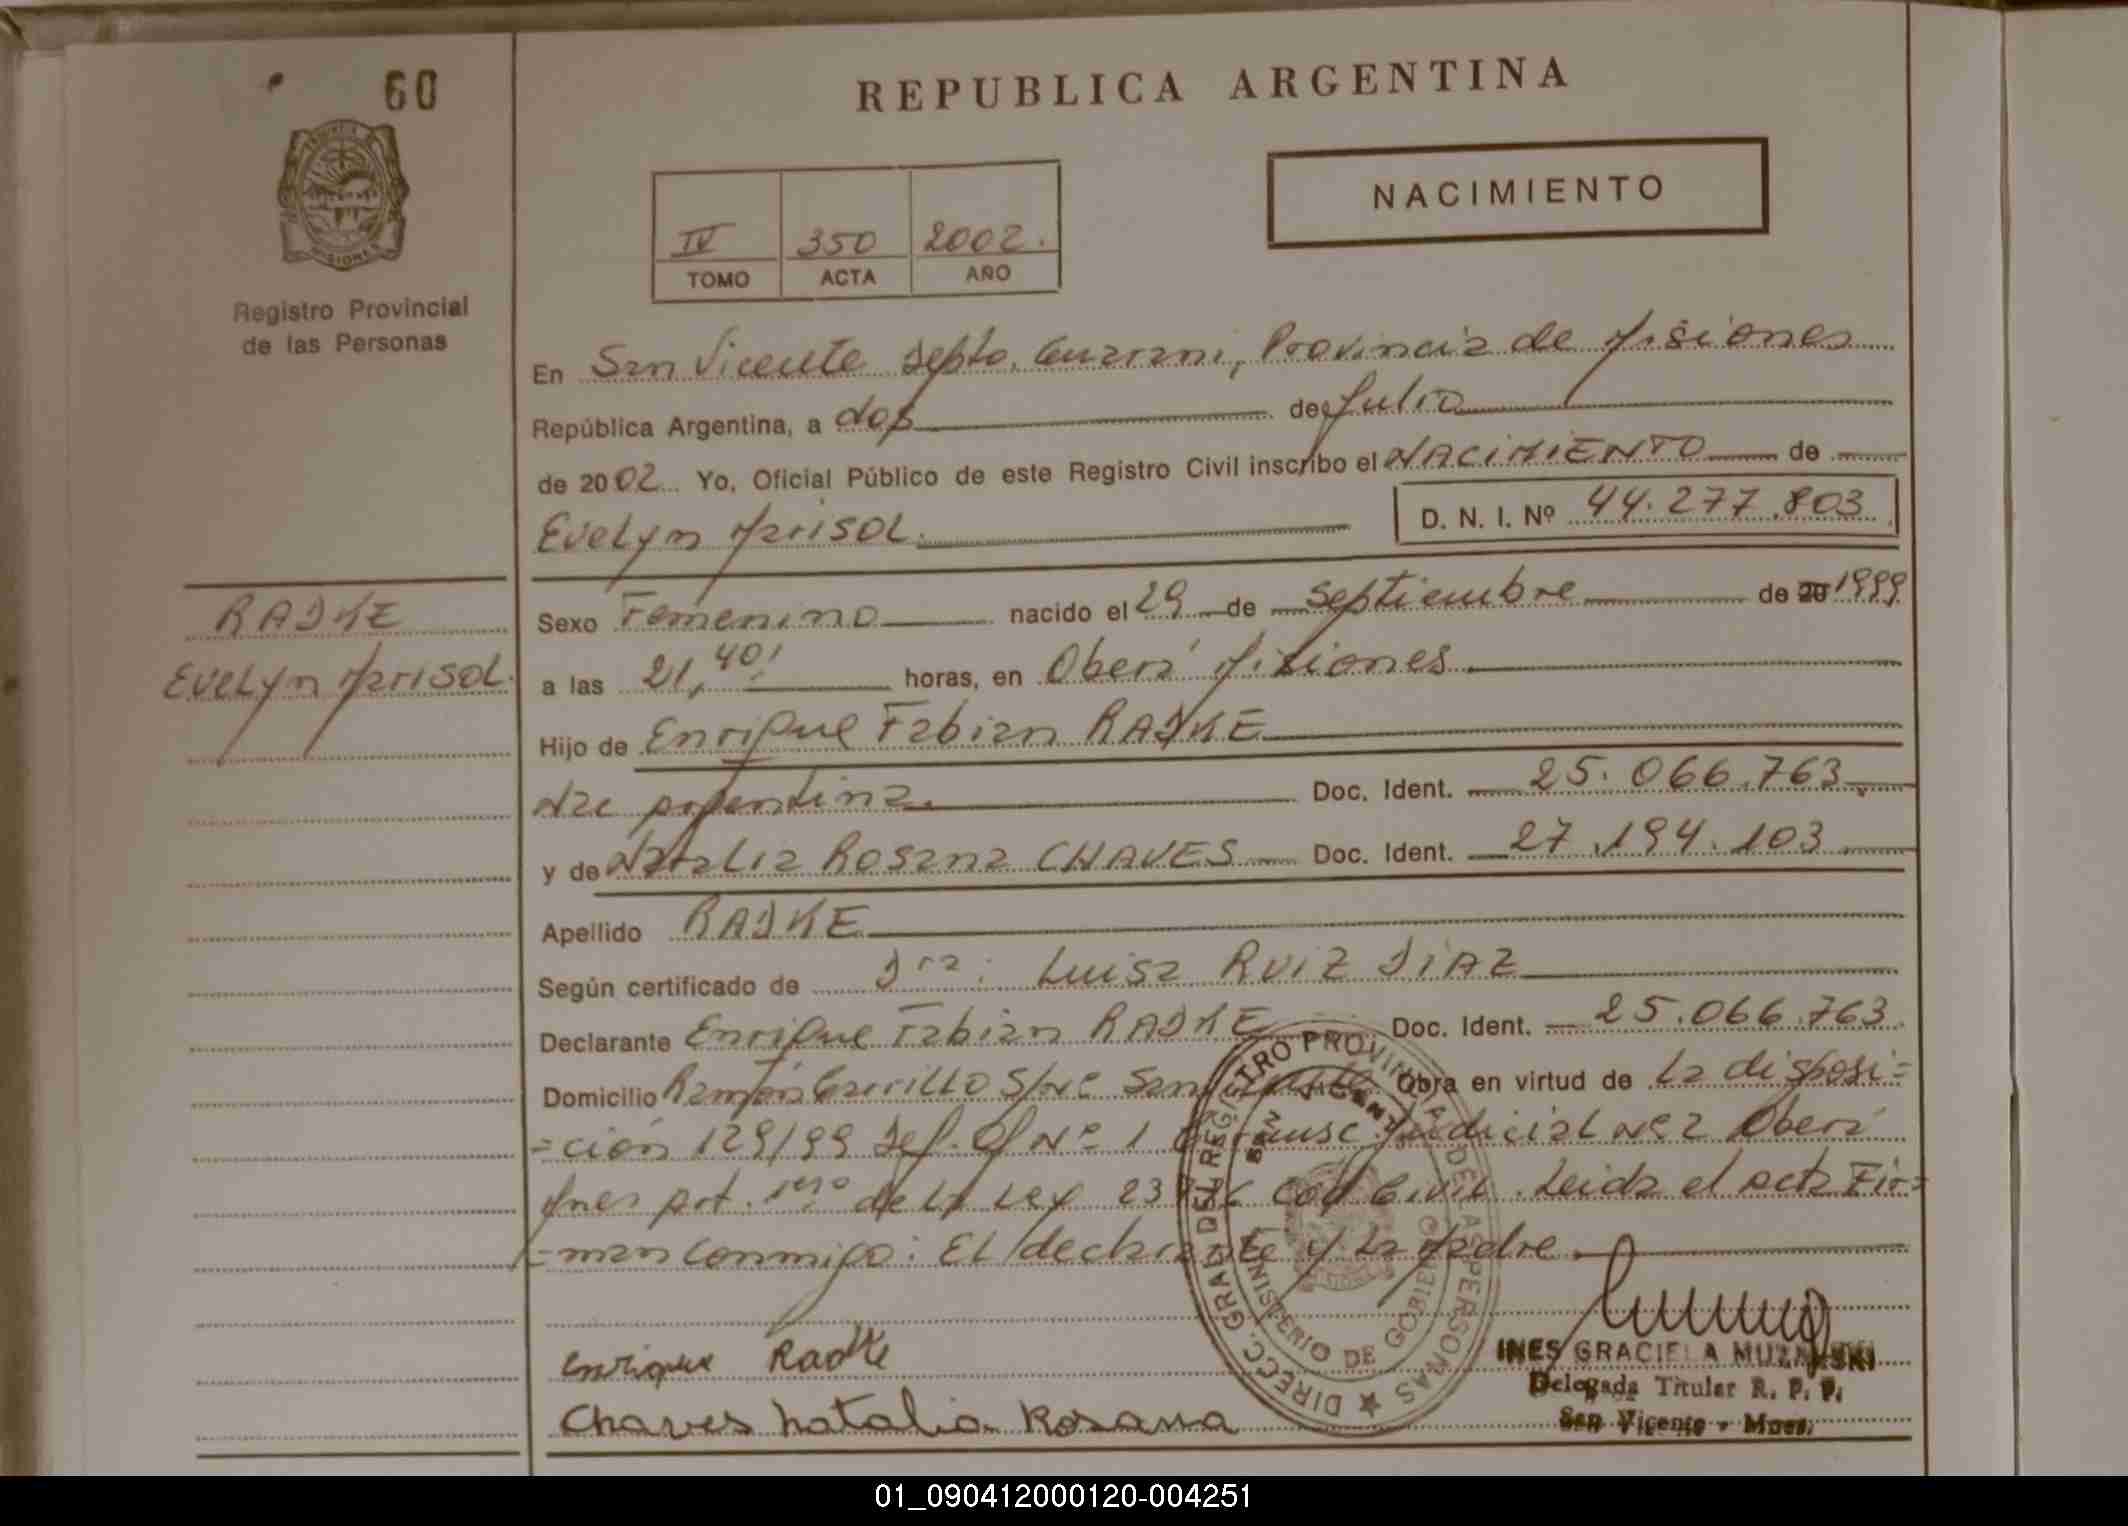 60
REPUBLICA ARGENTINA
NACIMIENTO
IV 350 2002.
TOMO ACTA AÑO
Registro Provincial
de las Personas
En San Vicente Depto. Guarani, Provincia de Misiones
República Argentina, a dos de Julio
de 2002 Yo, Oficial Público de este Registro Civil inscribo el NACIMIENTO de
Evelyn Marisol. D. N. I. Nº 44.277.803
RADKE
Evelyn Marisol.
Sexo Femenino nacido el 29 de Septiembre de 20 1999
a las 21,40' horas, en Oberá Misiones
Hijo de Enrique Fabian RADKE
Nac Argentina. Doc. Ident. 25.066.763
y de Natalia Rosana CHAVES Doc. Ident. 27.194.103
Apellido RADKE
Según certificado de Dra: Luisa RUIZ DIAZ
Declarante Enrique Fabian RADKE Doc. Ident. 25.066.763
Domicilio Ramón Carrillo S/Nº San Vicente Obra en virtud de la disposi=
=ción 129/99 Def. Of Nº 1 Judicial Nº 2 Oberá
Mnes Art. 1ero de la Ley Cod Civil. Leida el acta Fir=
=man conmigo: El declarante y la Madre
Enrique Radke
Chaves Natalia Rosana
DIRECC. GRAL DEL REGISTRO PROVINCIAL DE LAS PERSONAS
SAN VICENTE
MINISTERIO DE GOBIERNO
INES GRACIELA
Delegada Titular R. P. P.
San Vicente - Mnes.
01_090412000120-004251